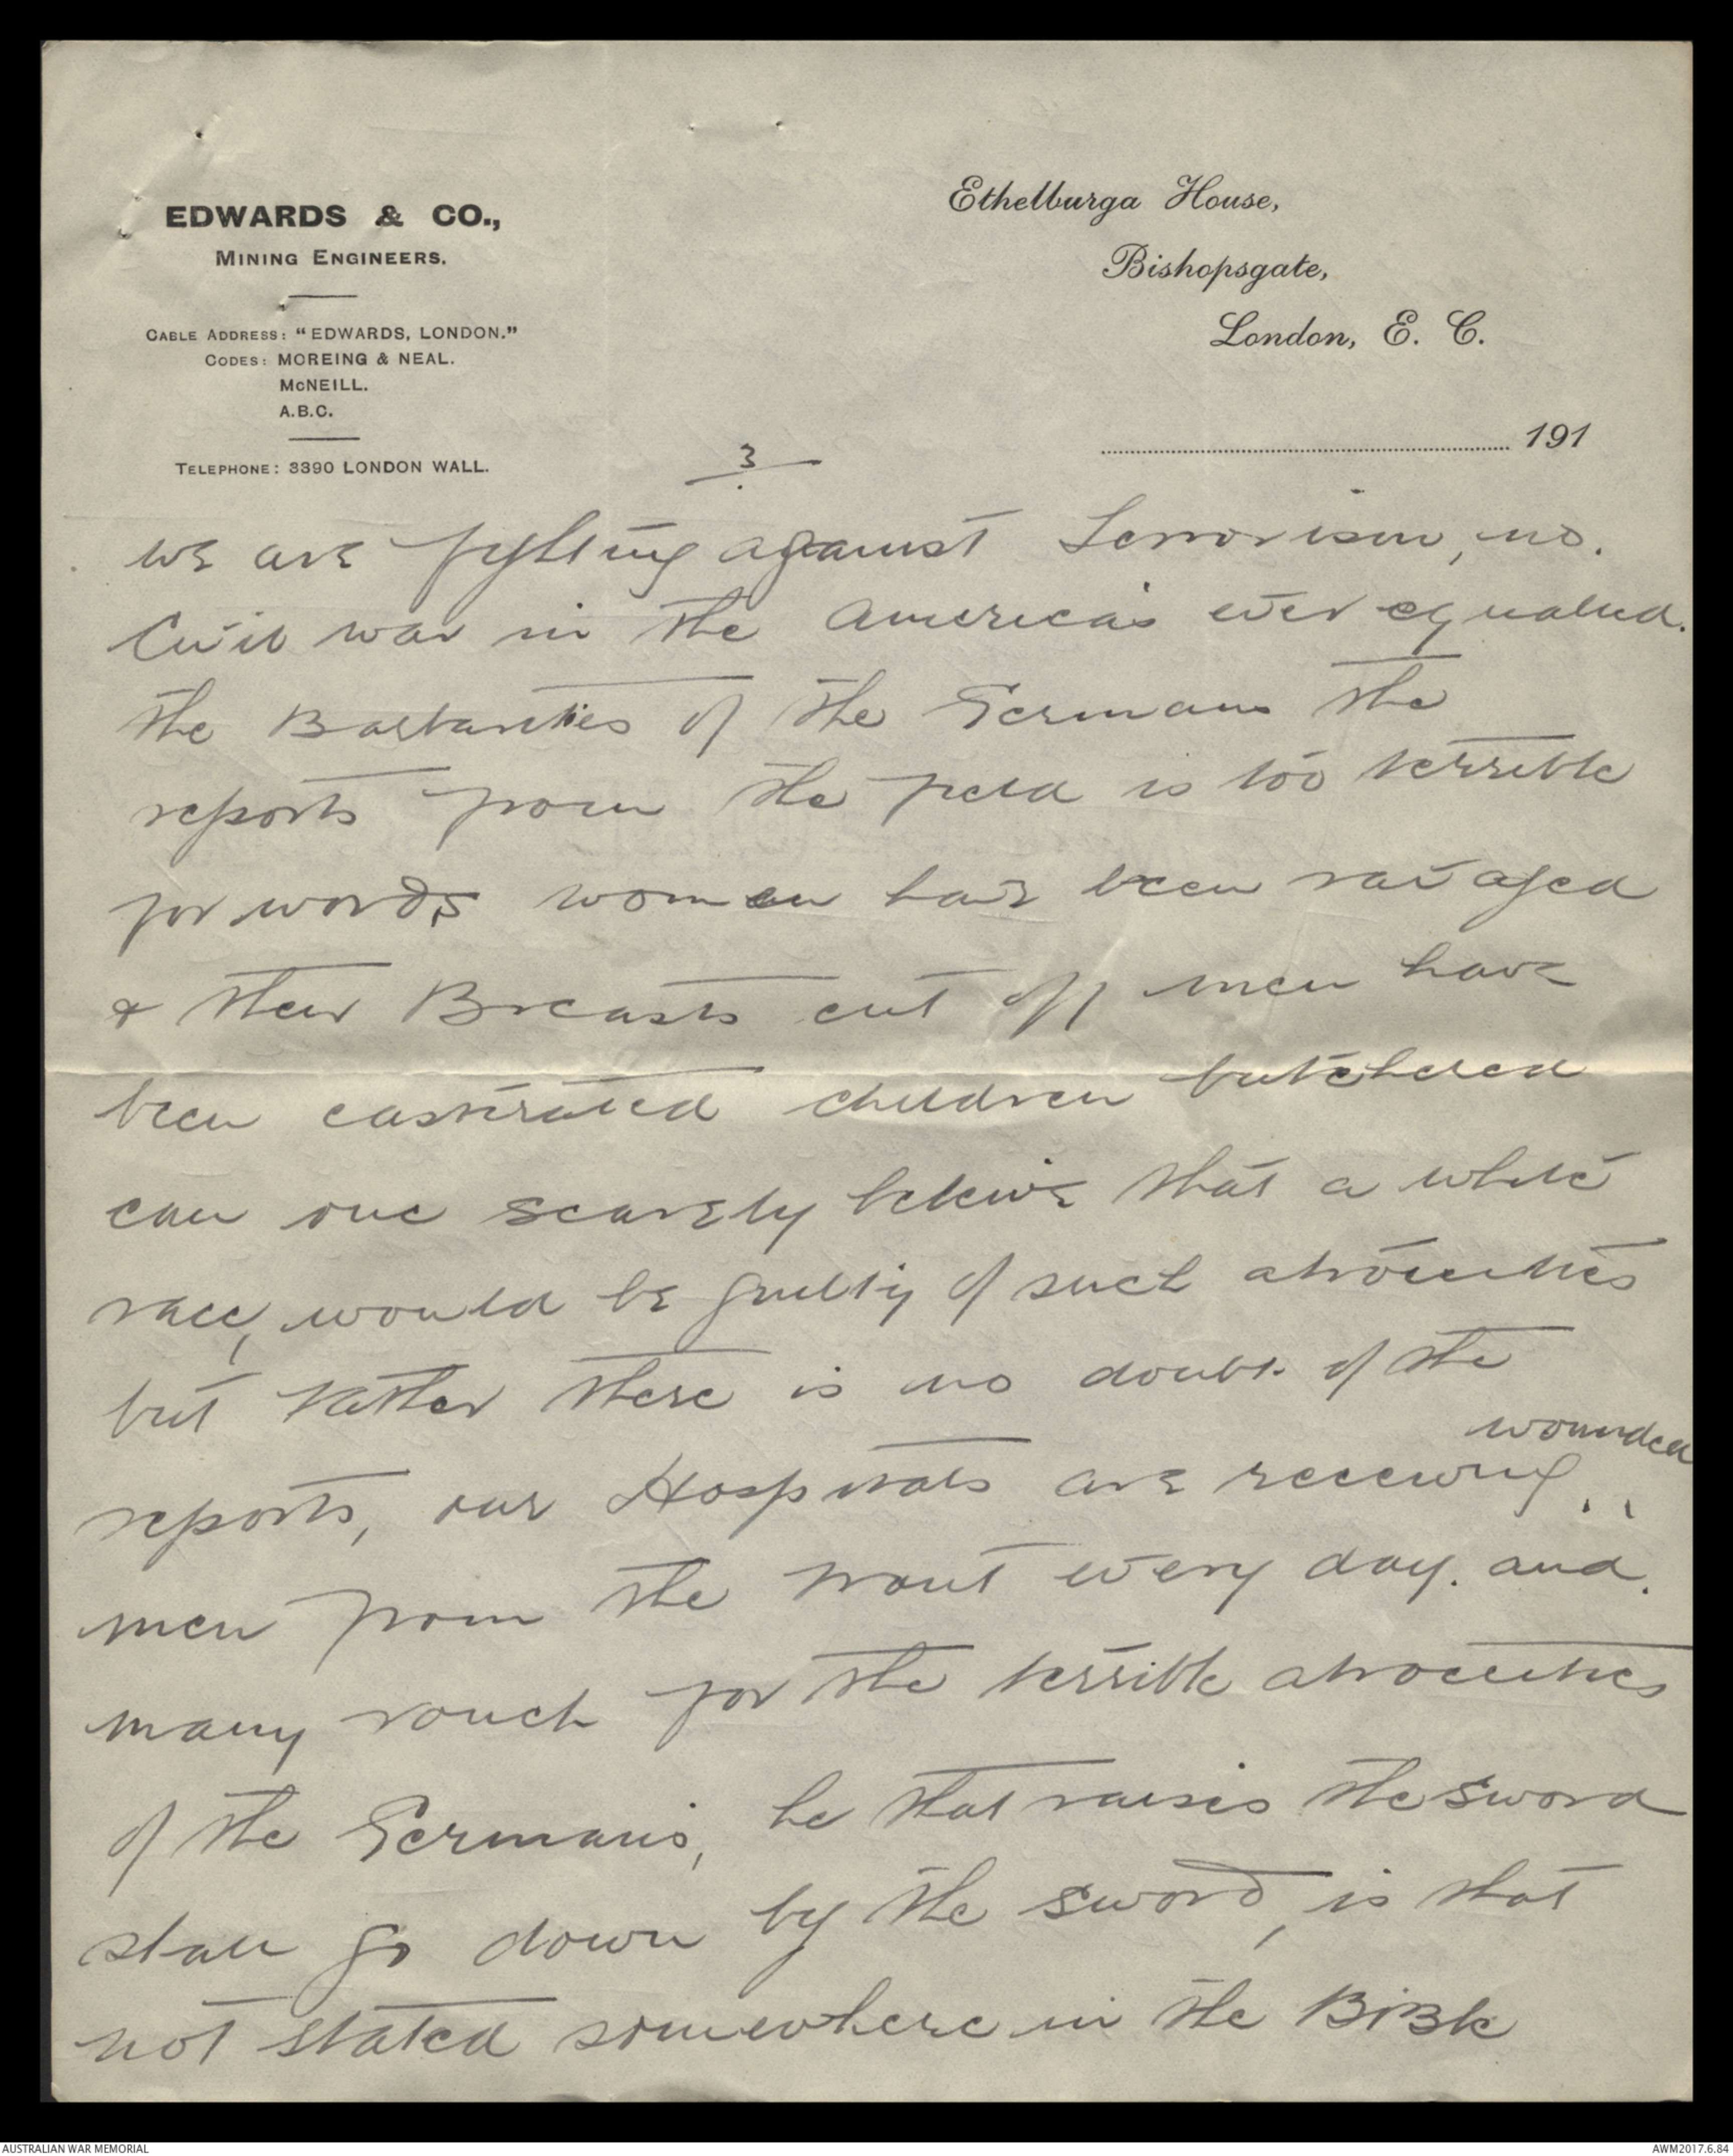 EDWARDS & CO.,
MINING ENGINEERS.
CABLE ADDRESS: "EDWARDS, LONDON."
CODES: MOREING & NEAL.
McNEILL.
A.B.C.
TELEPHONE: 3390 LONDON WALL.
Ethelburga House,
Bishopsgate,
London, E. C.
191
3
we are fighting against Terrorism, no.
Civil war in the America's ever equalled.
the Barbarities of the Germans the
reports from the field is too terrible
for words women have been ravaged
& their Breasts cut off men have
been castrated children butchered
can one scarcely beleive that a white
race, would be guilty of such atrocities
but Father there is no doubt of the
reports, our Hospitals are receiving wounded
men from the front every day. and.
many vouch for the terrible atrocities
of the Germans, he that raises the sword
shall go down by the sword, is that
not stated somewhere in the Bible
AUSTRALIAN WAR MEMORIAL
AWM2017.6.84